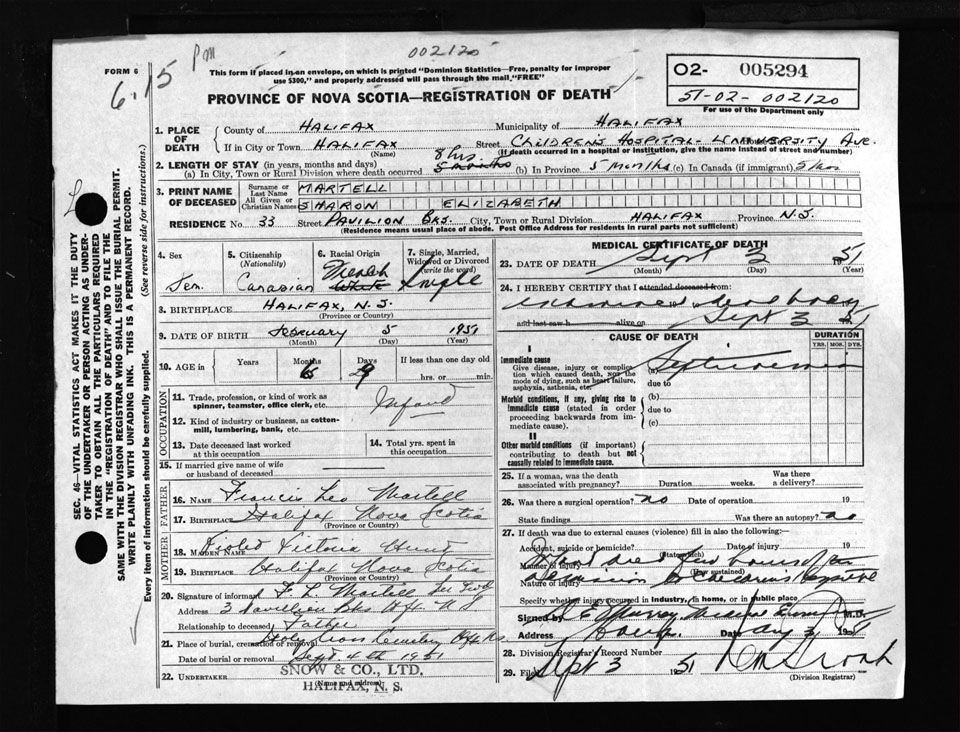 002120
6.15 pm
FORM 6
This form if placed in an envelope, on which is printed "Dominion Statistics—Free, penalty for improper
use $300," and properly addressed will pass through the mail, "FREE"
PROVINCE OF NOVA SCOTIA—REGISTRATION OF DEATH
O2- 005294
51-02-002120
For use of the Department only
SEC. 46—VITAL STATISTICS ACT MAKES IT THE DUTY
OF THE UNDERTAKER OR PERSON ACTING AS UNDER-
TAKER TO OBTAIN ALL THE PARTICULARS REQUIRED
IN THE "REGISTRATION OF DEATH" AND TO FILE THE
SAME WITH THE DIVISION REGISTRAR WHO SHALL ISSUE THE BURIAL PERMIT.
WRITE PLAINLY WITH UNFADING INK. THIS IS A PERMANENT RECORD.
Every item of information should be carefully supplied. (See reverse side for instructions.)
1. PLACE OF DEATH County of HALIFAX Municipality of HALIFAX
If in City or Town HALIFAX (Name) Street CHILDREN'S HOSPITAL - UNIVERSITY AVE.
(If death occurred in a hospital or institution, give the name instead of street and number)
2. LENGTH OF STAY (in years, months and days)
(a) In City, Town or Rural Division where death occurred 8 hrs (b) In Province 5 months (c) In Canada (if immigrant)
3. PRINT NAME OF DECEASED Surname or Last Name MARTELL
All Given or Christian Names SHARON ELIZABETH
RESIDENCE No. 33 Street PAVILION BKS. City, Town or Rural Division HALIFAX Province N.S.
(Residence means usual place of abode. Post Office Address for residents in rural parts not sufficient)
4. Sex Fem.
5. Citizenship (Nationality) Canadian
6. Racial Origin French White
7. Single, Married, Widowed or Divorced (write the word) Single
8. BIRTHPLACE HALIFAX, N.S.
(Province or Country)
9. DATE OF BIRTH February 5 1951
(Month) (Day) (Year)
10. AGE in Years Months 6 Days 29 If less than one day old
hrs. or min.
OCCUPATION
11. Trade, profession, or kind of work as
spinner, teamster, office clerk, etc. Infant
12. Kind of industry or business, as cotton-
mill, lumbering, bank, etc.
13. Date deceased last worked
at this occupation
14. Total yrs. spent in
this occupation
15. If married give name of wife
or husband of deceased
FATHER
16. NAME Francis Leo Martell
17. BIRTHPLACE Halifax Nova Scotia
(Province or Country)
MOTHER
18. MAIDEN NAME Violet Victoria Hunt
19. BIRTHPLACE Halifax Nova Scotia
(Province or Country)
20. Signature of informant F. L. Martell
Address 3 Pavilion Bks Hfx N.S.
Relationship to deceased Father
21. Place of burial, cremation or removal Holy Cross Cemetery Hfx N.S.
Date of burial or removal Sept 4th 1951
22. UNDERTAKER SNOW & CO., LTD.
(Name and address)
HALIFAX, N. S.
MEDICAL CERTIFICATE OF DEATH
23. DATE OF DEATH Sept 3 1951
(Month) (Day) (Year)
24. I HEREBY CERTIFY that I attended deceased from:
examined dead body
and last saw h alive on Sept 3 51
CAUSE OF DEATH
DURATION
YRS. MOS. DYS.
I
Immediate cause
Give disease, injury or compli-
cation which caused death, not the
mode of dying, such as heart failure,
asphyxia, asthenia, etc.
(a) Septicemia
due to
Morbid conditions, if any, giving rise to
immediate cause (stated in order
proceeding backwards from im-
mediate cause).
(b)
due to
(c)
II
Other morbid conditions (if important)
contributing to death but not
causally related to immediate cause.
25. If a woman, was the death
associated with pregnancy? Duration weeks. Was there
a delivery?
26. Was there a surgical operation? no Date of operation 19
State findings Was there an autopsy? no
27. If death was due to external causes (violence) fill in also the following:
Accident, suicide or homicide? Date of injury 19
(State which)
Manner of injury died few hours after
(How sustained)
Nature of injury admission to Childrens Hospital
Specify whether injury occurred in Industry, in home, or in public place
Signed by Murray Medical M.D.
Address Date 3 1951
28. Division Registrar's Record Number
29. Filed Sept 3 1951
(Division Registrar)